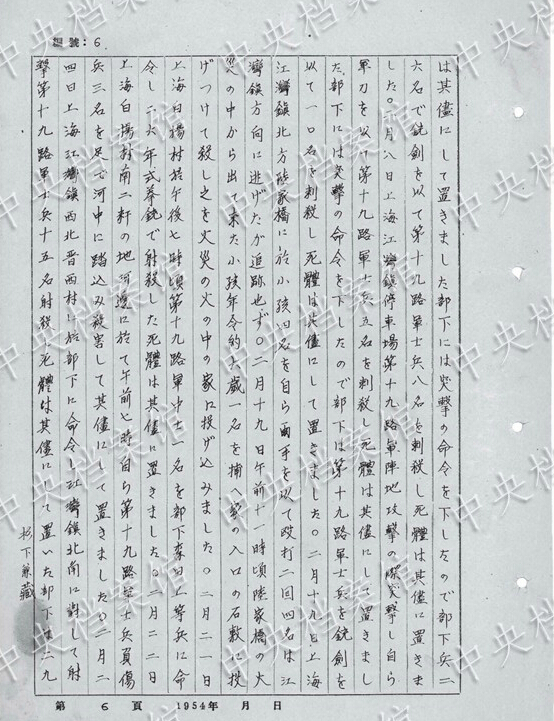 編號：6
は其儘にして置きました部下には突撃の命令を下したので部下兵二
六名で銃剣を以て第十九路軍士兵八名を刺殺し死體は其儘にして置きま
した。月八日上海江湾鎮停車場第十九路軍陣地攻撃の際突撃し自ら
軍刀を以て第十九路軍士兵五名を刺殺し死體は其儘にして置きまし
た部下には突撃の命令を下したので部下は第十九路軍士兵を銃剣を
以て一〇名を刺殺し死體は其儘にして置きました。二月十九日上海
江湾鎮北方陸家橋に於小孩四名を自ら両手を以て殴打二回四名は江
湾鎮方向に逃げたが追跡せず。二月十九日午前十一時頃陸家橋の火
災の中から出て来た小孩年令約六歳一名を捕へ家の入口の石敷に投
げつけて殺し之を火災の火の中の家に投げ込みました。二月二一日
上海白楊村於午後七時頃第十九路軍中士一名を部下 上等兵に命
令し二六年式拳銃で射殺した死體は其儘に置きました。二月二二日
上海白楊村南二軒の地河辺に於て午前七時自ら第十九路軍士兵負傷
兵三名を足で河中に踏込み殺害して其儘にして置きました。二月二
四日上海江湾鎮西北晋西村に於部下に命令し江湾鎮北南に対して射
撃第十九路軍士兵十五名射殺し死體は其儘にして置いた部下は二九
杉下兼藏
第 6 頁 1954年 月 日
中央档案馆